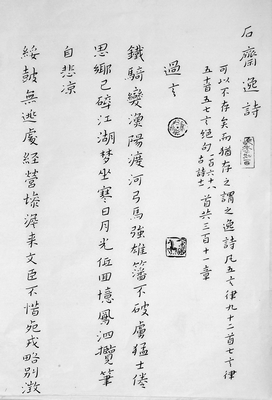 石齋逸詩
可以不存矣而猶存之謂之逸詩凡五言律九十二首七言律
五十首五七言絕句一百六十六古詩 首共三百十一章
過言
鐵騎變漁陽渡河弓馬強雄藩不破虜猛士倦
思鄉已碎江湖夢坐寒日月光低回憶鳳泗攬筆
自悲涼
綏鼓無逃處經營慘澹來文臣不惜死戎略別澂